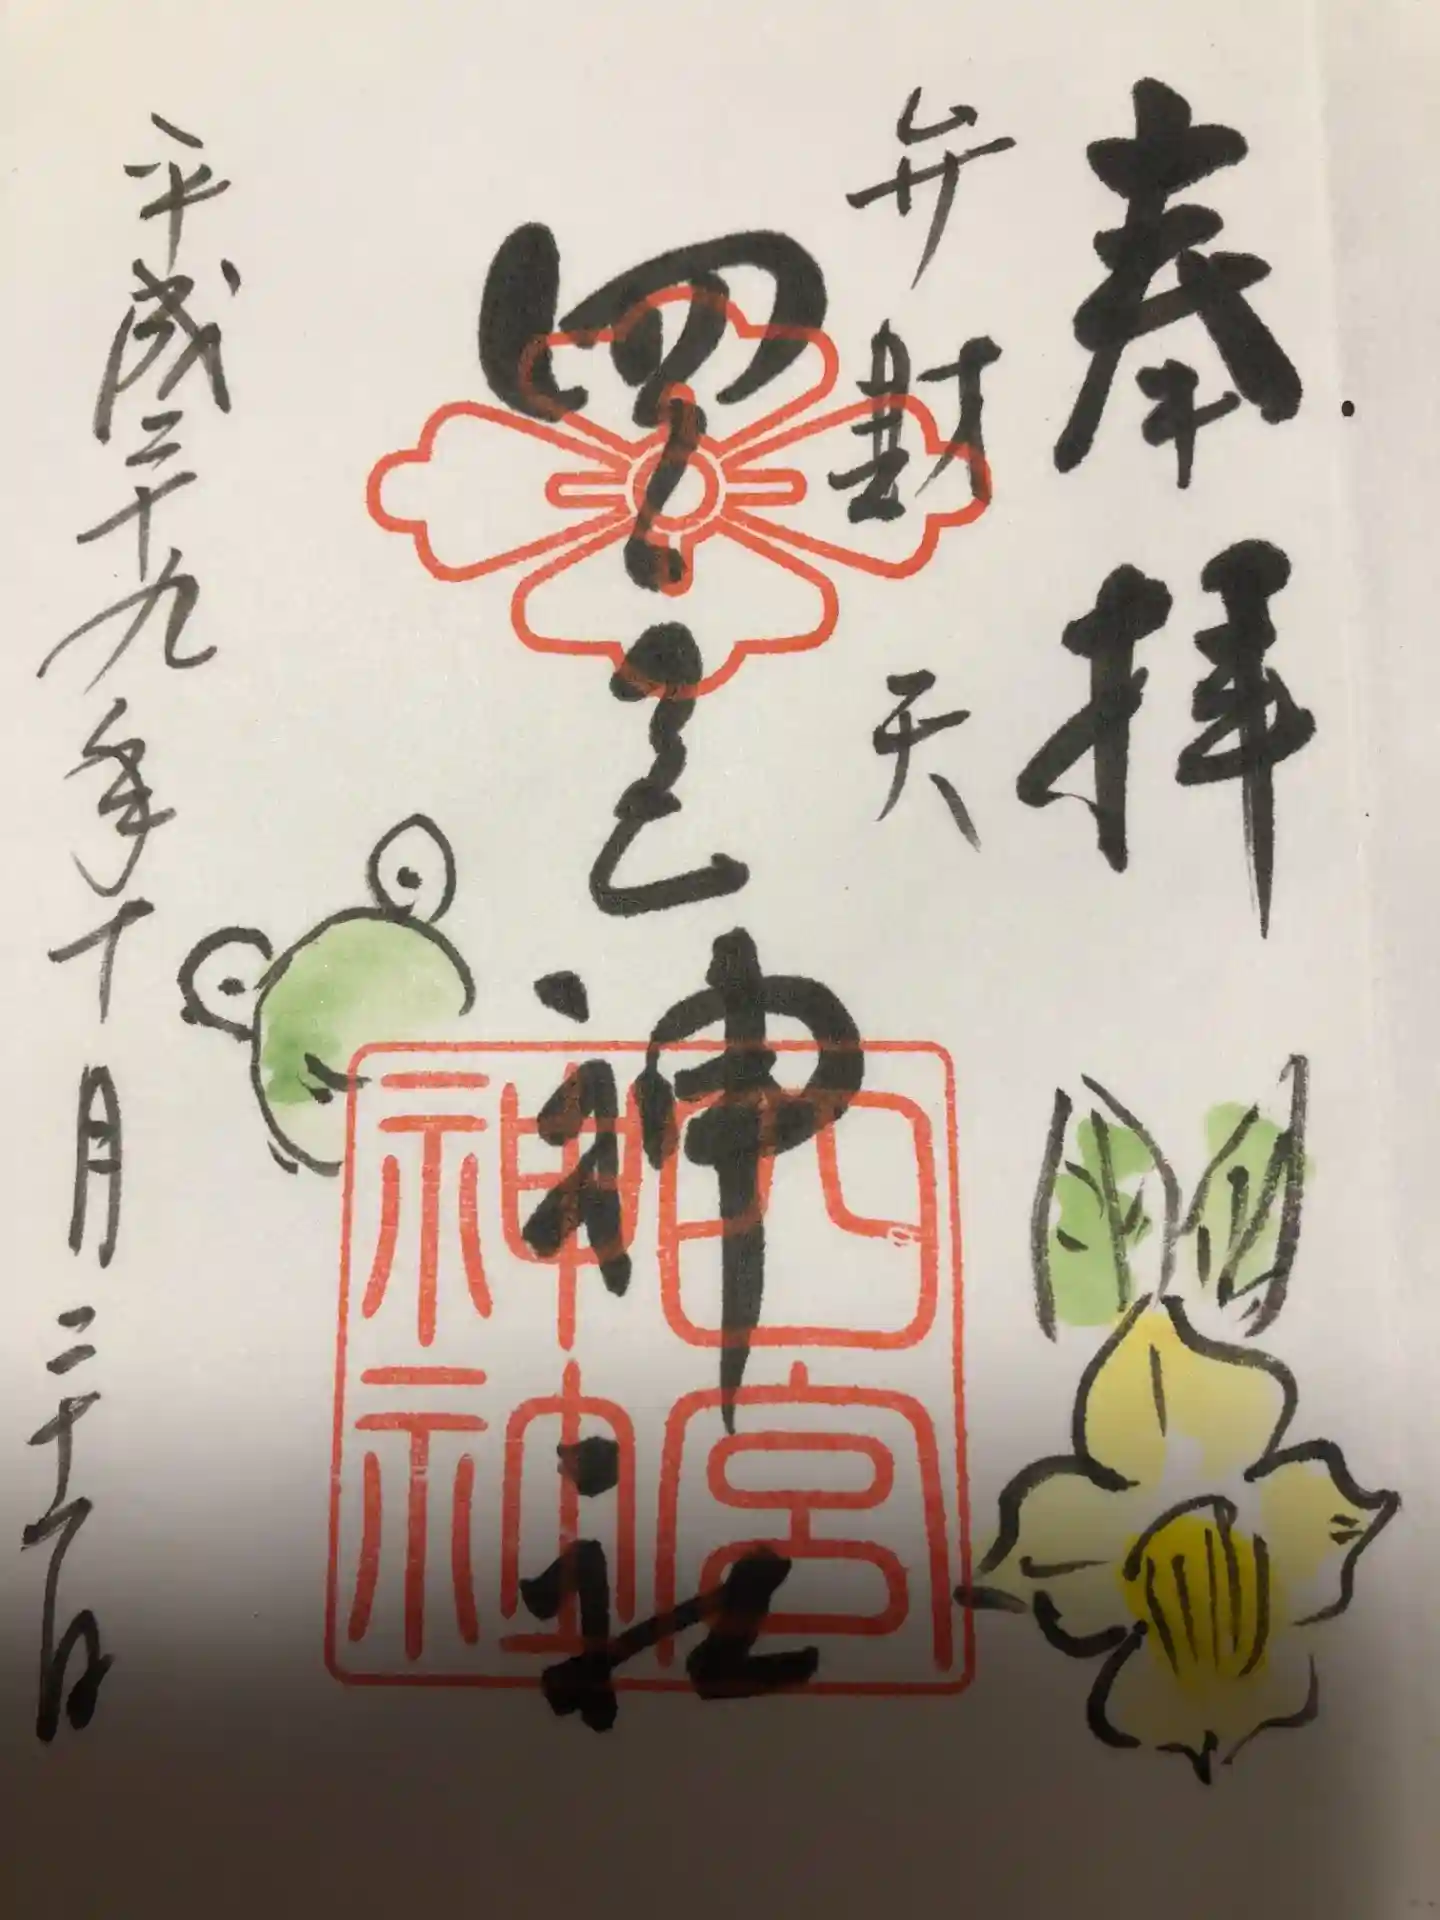 奉拝
弁財天
四宮神社
四宮
神社
平成二十九年十月二十日